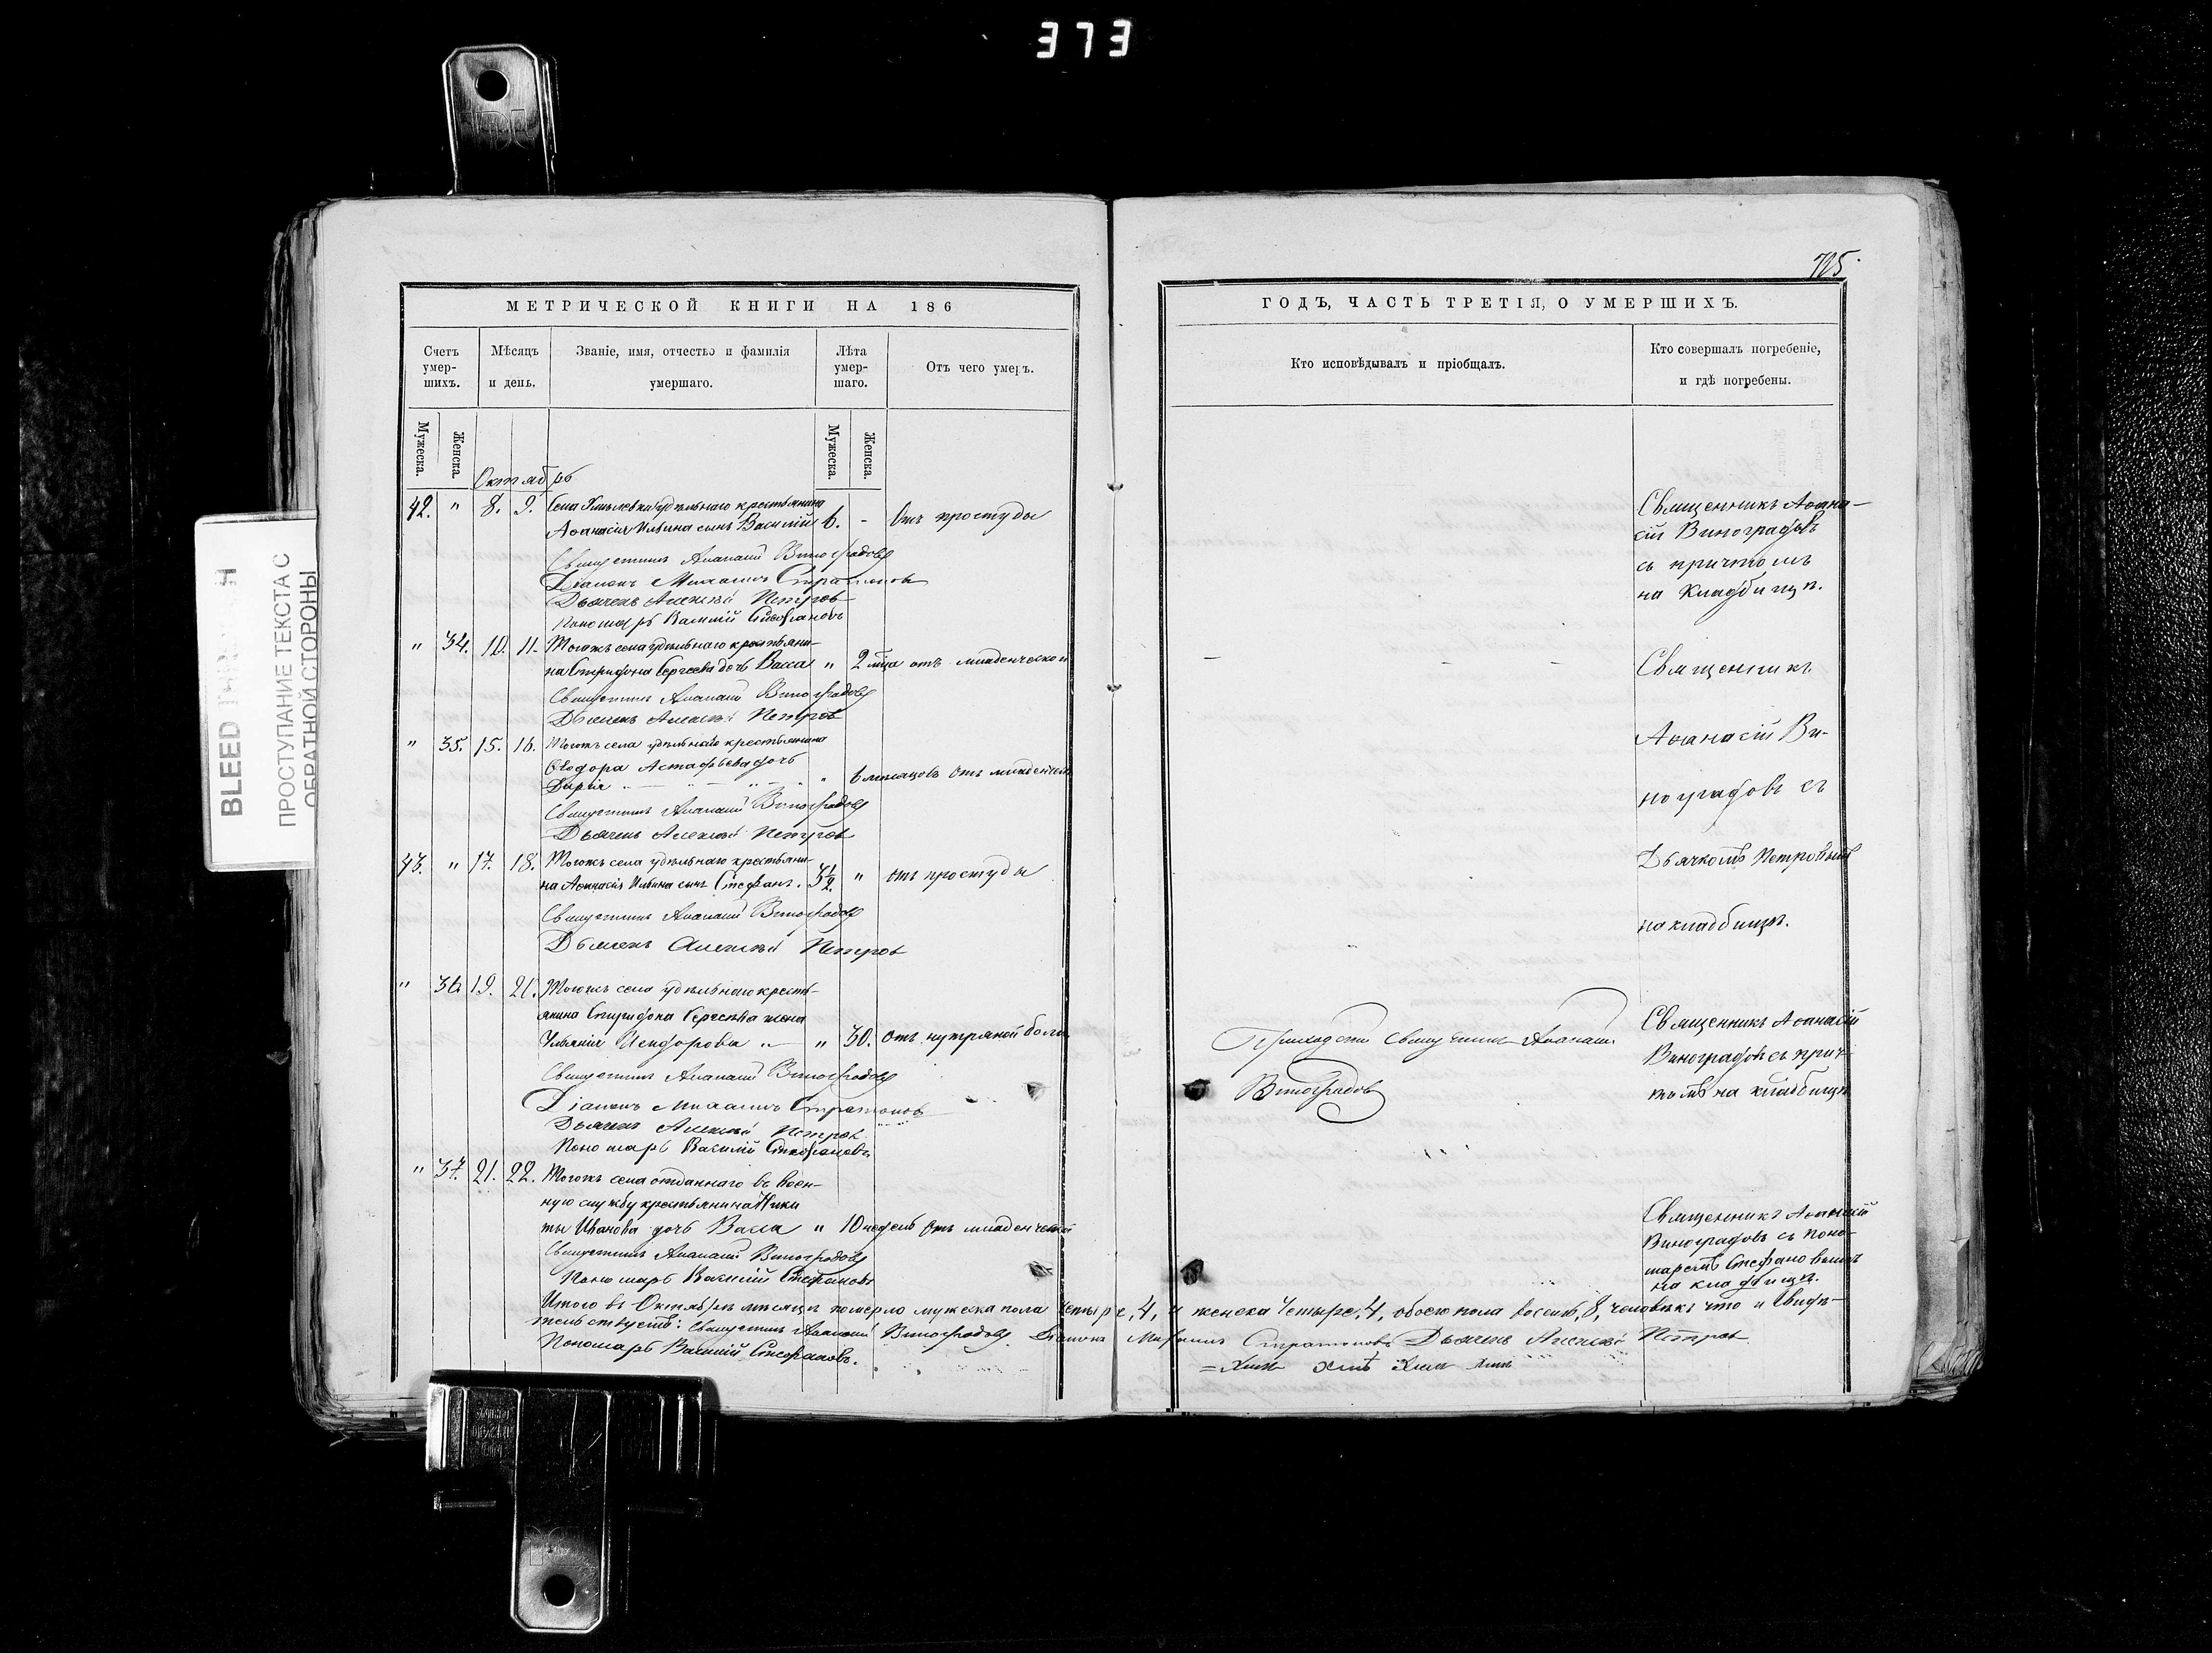 373
725
BLEED
ПРОСТУПАНИЕ ТЕКСТА С
ОБРАТНОЙ СТОРОНЫ
МЕТРИЧЕСКОЙ КНИГИ НА 186
Счетъ умер-шихъ.
Мѣсяцъ и день.
Званіе, имя, отчество и фамилія умершаго.
Лѣта умер-шаго.
Отъ чего умеръ.
Мужеска.
Женска.
Мужеска.
Женска.
Октябрь
42. " 8. 9. Села удѣльнаго крестьянина
Аѳанасія Ильина сынъ Василій 6. - Отъ простуды
Священникъ Аѳанасій Виноградовъ
Діаконъ Михаилъ Стратоновъ
Дьячекъ Алексѣй Петровъ
Пономарь Василій Стефановъ
" 34. 10. 11. Тогожъ села удѣльнаго крестьяни-
на Спиридона Сергеева дочь Васса " 2 мца отъ младенческой
Священникъ Аѳанасій Виноградовъ
Дьячекъ Алексѣй Петровъ
" 35. 15. 16. Тогожъ села удѣльнаго крестьянина
Ѳеодора Астафьева дочь
Дарія " 6 мѣсяцовъ Отъ младенческ
Священникъ Аѳанасій Виноградовъ
Дьячекъ Алексѣй Петровъ
43. " 17. 18. Тогожъ села удѣльнаго крестьяни-
на Аѳанасія Ильина сынъ Стефанъ. 3½. " отъ простуды
Священникъ Аѳанасій Виноградовъ
Дьячекъ Алексѣй Петровъ
" 36 19. 21. Тогожъ села удѣльнаго кресть-
янина Спиридона Сергеева жена
Исидорова " 30. Отъ нутряной боли
Священникъ Аѳанасій Виноградовъ
Діаконъ Михаилъ Стратоновъ
Дьячекъ Алексѣй Петровъ
Пономарь Василій Стефановъ
" 37. 21. 22. Тогожъ села отданнаго въ воен-
ную службу крестьянина Ники
ты Иванова дочь Васса " 10 недель Отъ младенческой
Священникъ Аѳанасій Виноградовъ
Пономарь Василій Стефановъ
Итого въ Октябрѣ мѣсяцѣ померло мужеска пола четыре, 4, и женска четыре, 4, обоего пола восемь, 8, человѣкъ что и свидѣ-
тельствуемъ: Священникъ Аѳанасій Виноградовъ Діаконъ Михаилъ Стратоновъ Дьячекъ Алексѣй Петровъ
Пономарь Василій Стефановъ.
ГОДЪ, ЧАСТЬ ТРЕТІЯ, О УМЕРШИХЪ.
Кто исповѣдывалъ и пріобщалъ.
Кто совершалъ погребеніе, и гдѣ погребены.
Священникъ Аѳана-
сій Виноградовъ
съ причтомъ
на кладбищѣ.
Священникъ
Аѳанасій Ви-
ноградовъ съ
Дьячкомъ Петровымъ
на кладбищѣ.
Приходскій священникъ Аѳанасій
Виноградовъ
Священникъ Аѳанасій
Виноградовъ съ прич-
томъ на кладбищѣ
Священникъ Аѳанасій
Виноградовъ съ поно-
маремъ Стефановымъ
на кладбищѣ.